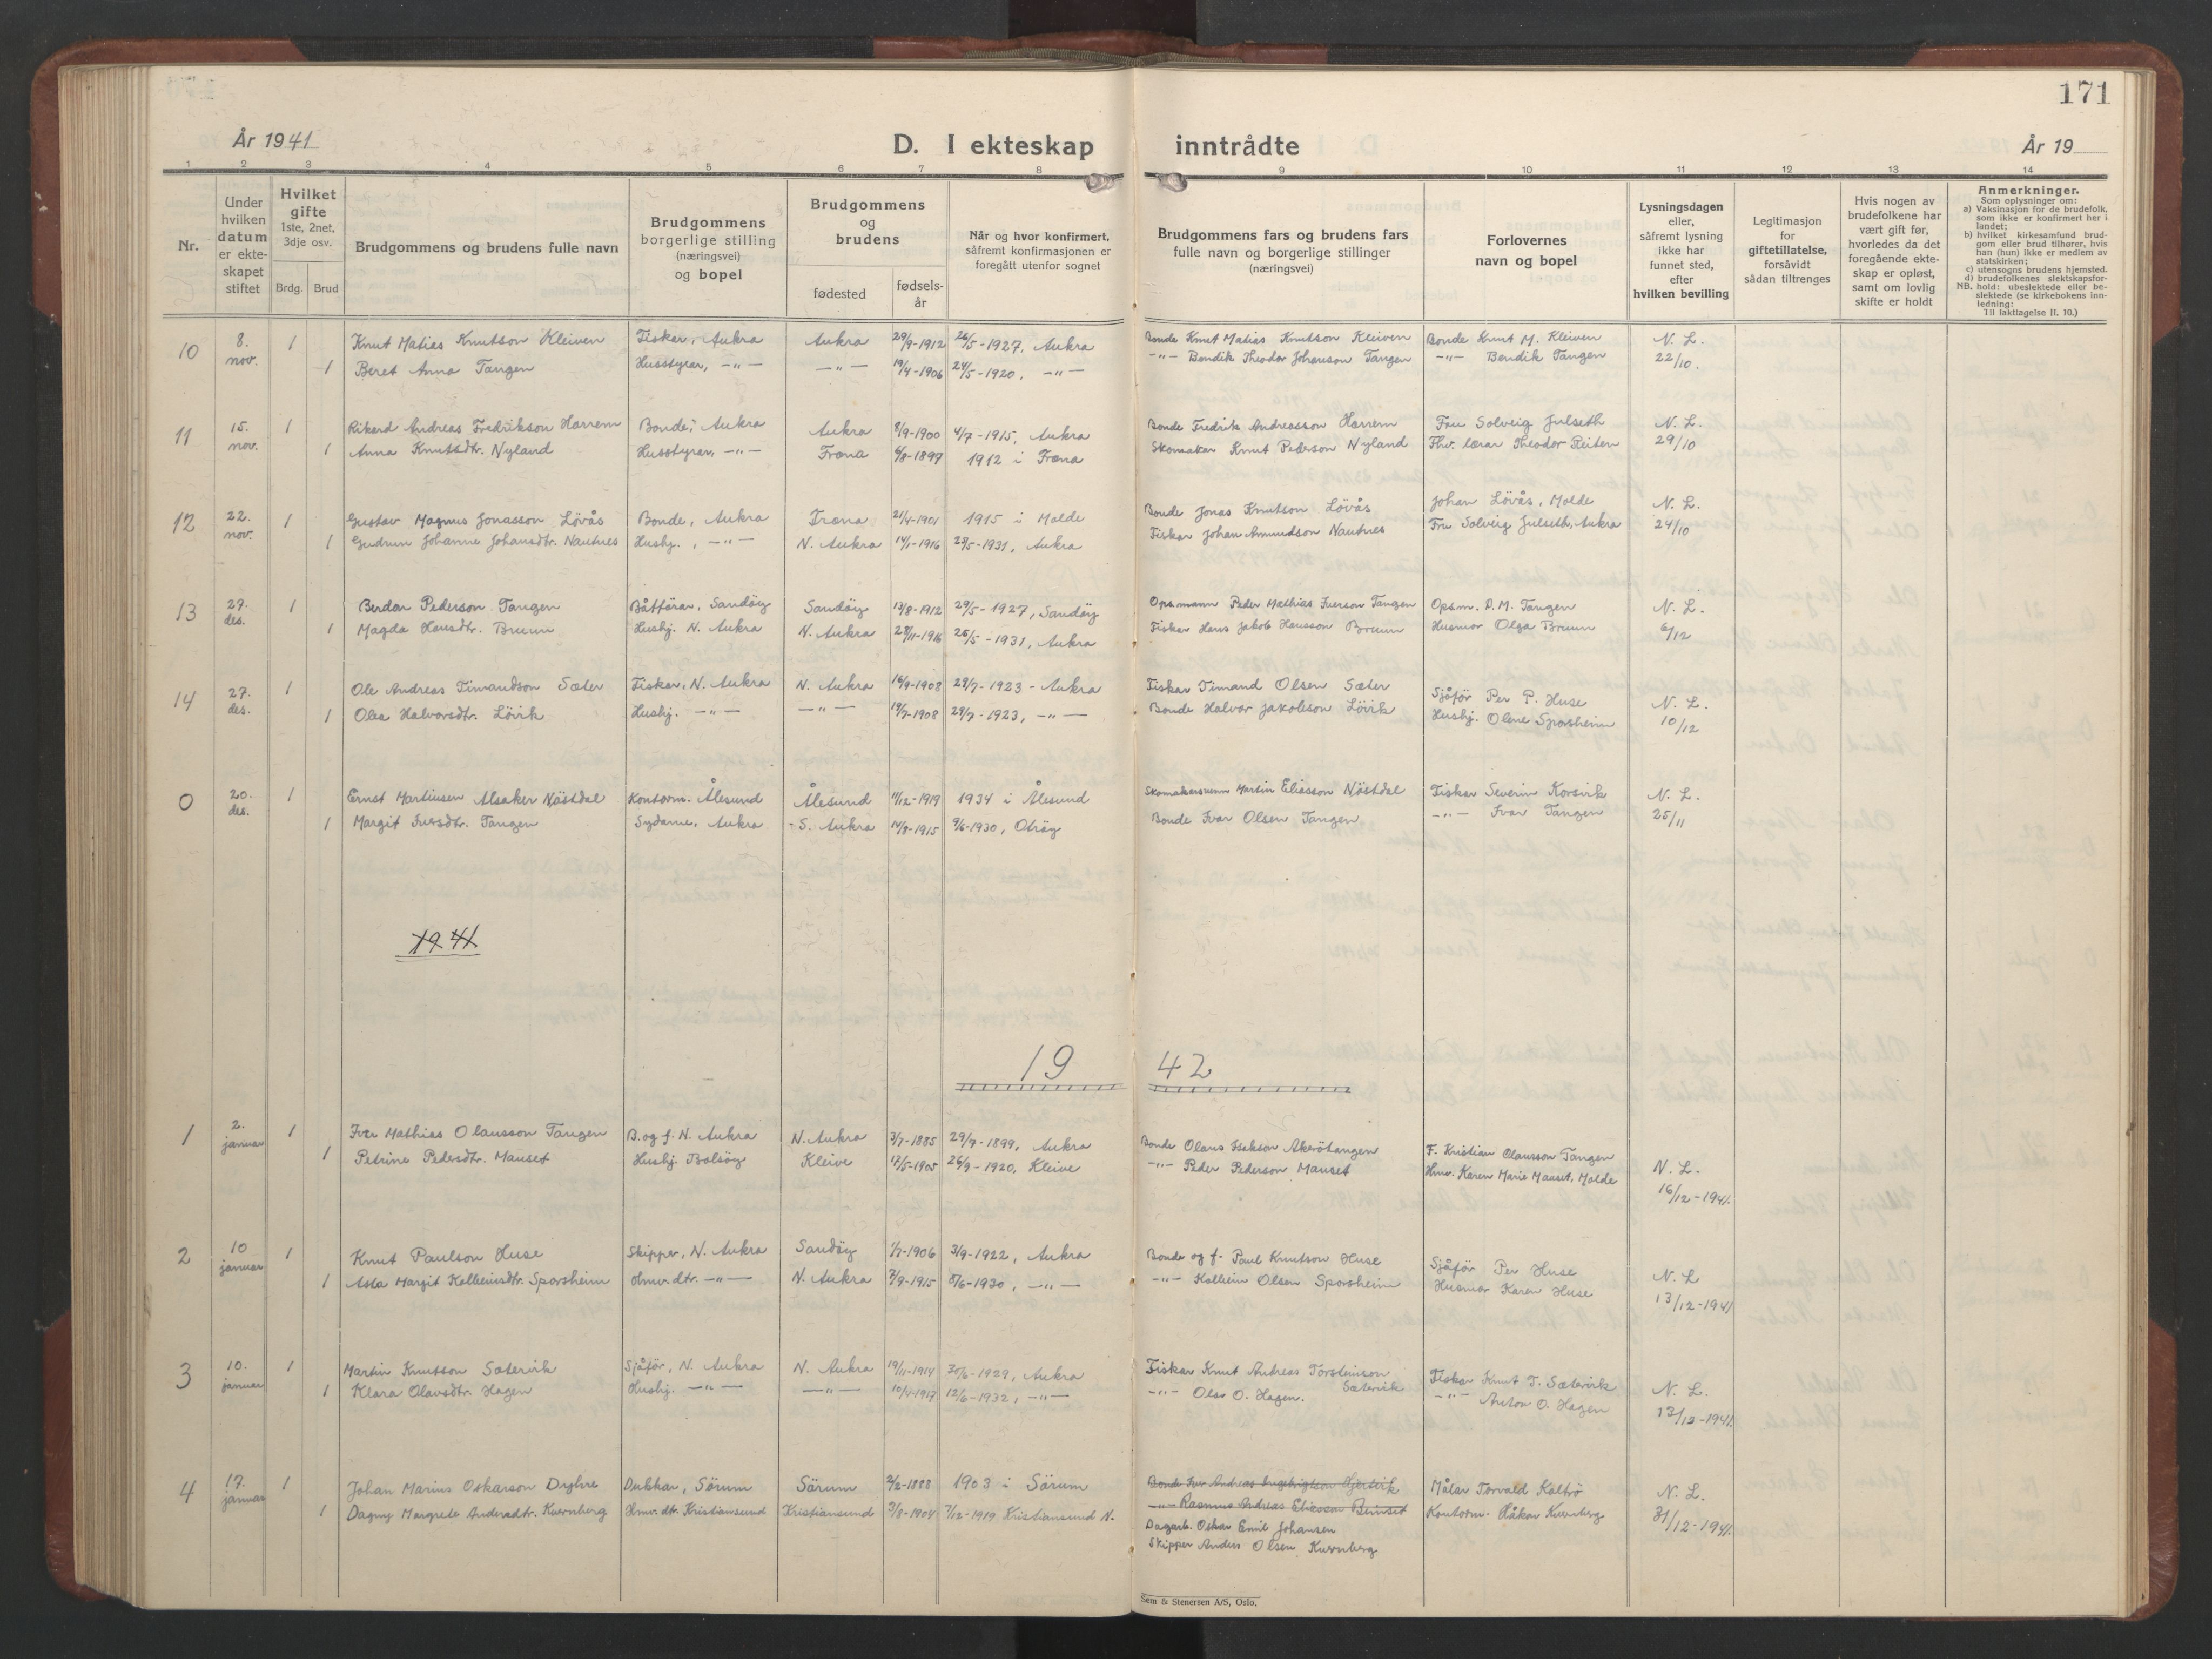 171
År 1941
D. I ekteskap inntrådte
År 19
1 2 3 4 5 6 7 8 9 10 11 12 13 14
Nr.
Under hvilken datum er ekte-skapet stiftet
Hvilket gifte 1ste, 2net, 3dje osv.
Brdg. Brud
Brudgommens og brudens fulle navn
Brudgommens borgerlige stilling (næringsvei) og bopel
Brudgommens og brudens
fødested fødsels-år
Når og hvor konfirmert, såfremt konfirmasjonen er foregått utenfor sognet
Brudgommens fars og brudens fars fulle navn og borgerlige stillinger (næringsvei)
Forlovernes navn og bopel
Lysningsdagen eller, såfremt lysning ikke har funnet sted, efter hvilken bevilling
Legitimasjon for giftetillatelse, forsåvidt sådan tiltrenges
Hvis nogen av brudefolkene har vært gift før, hvorledes da det foregående ekte-skap er opløst, samt om lovlig skifte er holdt
Anmerkninger.
Som oplysninger om:
a) Vaksinasjon for de brudefolk, som ikke er konfirmert her i landet;
b) hvilket kirkesamfund brud-gom eller brud tilhører, hvis han (hun) ikke er medlem av statskirken;
c) utensogns brudens hjemsted.
d) brudefolkenes slektskapsfor-hold: ubeslektede eller be-slektede (se kirkebokens inn-ledning:
NB. Til iakttagelse II. 10.)
10 8. nov. 1 Knut Matias Knutson Kleiven Fiskar, Aukra Aukra 29/9-1912 26/5-1927, Aukra Bonde Knut Matias Knutson Kleiven Bonde Knut M. Kleiven N. L.
1 Beret Anna Tangen Husstyrar, -"- -"- 19/4-1906 24/5-1920, -"- -"- Bendik Theodor Johanson Tangen -"- Bendik Tangen 22/10.
11 15. nov. 1 Rikard Andreas Fredrikson Harrem Bonde, Aukra Aukra 8/9-1900 4/7-1915, Aukra Bonde Fredrik Andreasson Harrem Fru Solveig Julseth N. L.
1 Anna Knutsdtr. Nyland Husstyrar, -"- Fræna 6/8-1897 1912 i Fræna Skomakar Knut Pederson Nyland Fhv. lærar Theodor Reiten 29/10
12 22. nov. 1 Gustav Magnus Jonasson Lövås Bonde, Aukra Fræna 21/4-1901 1915 i Molde Bonde Jonas Knutson Lövås Johan Lövås, Molde N. L.
1 Gudrun Johanne Johansdtr. Nautnes Hushj., -"- N. Aukra 14/1-1916 28/5-1931, Aukra Fiskar Johan Amundson Nautnes Fru Solveig Julseth, Aukra 24/10
13 27. des. 1 Berdon Pederson Tangen Båtförar, Sandöy Sandöy 13/8-1912 29/5-1927, Sandöy Opsmann Peder Mathias Iverson Tangen Opsm. P. M. Tangen N. L.
1 Magda Hansdtr. Bruun Hushj. N. Aukra N. Aukra 28/11-1916 25/5-1931, Aukra Fiskar Hans Jakob Hansson Bruun Husmor Olga Bruun 6/12
14 27. des. 1 Ole Andreas Timandson Sæter Fiskar, N. Aukra N. Aukra 16/9-1908 29/7-1923 - Aukra Fiskar Timand Olsen Sæter Sjåför Per P. Huse N. L.
1 Olea Halvorsdtr. Lövik Hushj. -"- -"- 18/7-1908 29/7-1923, -"- Bonde Halvor Jakobson Lövik Hushj. Oline Sporsheim 10/12
0 20. des. 1 Ernst Martiusen Alsaker Nästdal Kontorm. Ålesund Ålesund 11/12-1919 1934 i Ålesund Skomakersvenn Martin Eliasson Nästdal Fiskar Severin Korsvik N. L.
1 Margit Iversdtr. Tangen Sydame, Aukra S. Aukra 14/8-1915 9/6-1930, Otröy Bonde Ivar Olsen Tangen -"- Ivar Tangen 25/11
1941
1942
1 2. januar 1 Iver Mathias Olausson Tangen B. og f. N. Aukra N. Aukra 3/7-1885 29/7-1899, Aukra Bonde Olaus Isakson Akerötangen F. Kristian Olausson Tangen
1 Petrine Pedersdtr. Mauset Hushj. Bolsöy Kleive 17/5-1905 26/9-1920, Kleive -"- Peder Pederson Mauset Hmv. Karen Marie Mauset, Molde N. L. 16/12-1941.
2 10 januar 1 Knut Paulson Huse Skipper, N. Aukra Sandöy 1/7-1906 3/9-1922, Aukra Bonde og f. Paul Knutson Huse Sjåför Per Huse N. L
1 Asta Margit Kolbeinsdtr. Sporsheim Hmv. dtr. -"- N. Aukra 7/9-1915 8/6-1930, -"- -"- Kolbein Olsen Sporsheim Husmor Karen Huse 13/12-1941
3 10. januar 1 Martin Knutson Sætervik Sjåför, N. Aukra N. Aukra 19/11-1914 30/6-1929, Aukra Fiskar Knut Andreas Torsteinson Sætervik Fiskar Knut T. Sætervik N. L.
1 Klara Olavsdtr. Hagen Hushj. -"- -"- 10/4-1917 12/6-1932, -"- -"- Olav O. Hagen. -"- Anton O. Hagen 13/12-1941.
4 17. januar 1 Johan Marius Oskarson Dryhre Dubkar, Sörum Sörum 2/2-1888 1903 i Sörum Bonde Iver Andreas Ingebrigtson Hjertvik Målar Torvald Kaltrø N. L.
1 Dagny Margrete Andersdtr. Kvernberg Hmv. dtr. Kristiansund Kristiansund 3/8-1904 7/12-1919 Kristiansund N. -"- Rasmus Andreas Eliasson Beinset Kontorm. Håkon Kvernberg 31/12-1941.
Dagarb. Oskar Emil Johansen
Skipper Anders Olsen Kvernberg
Sem & Stenersen A/S, Oslo.